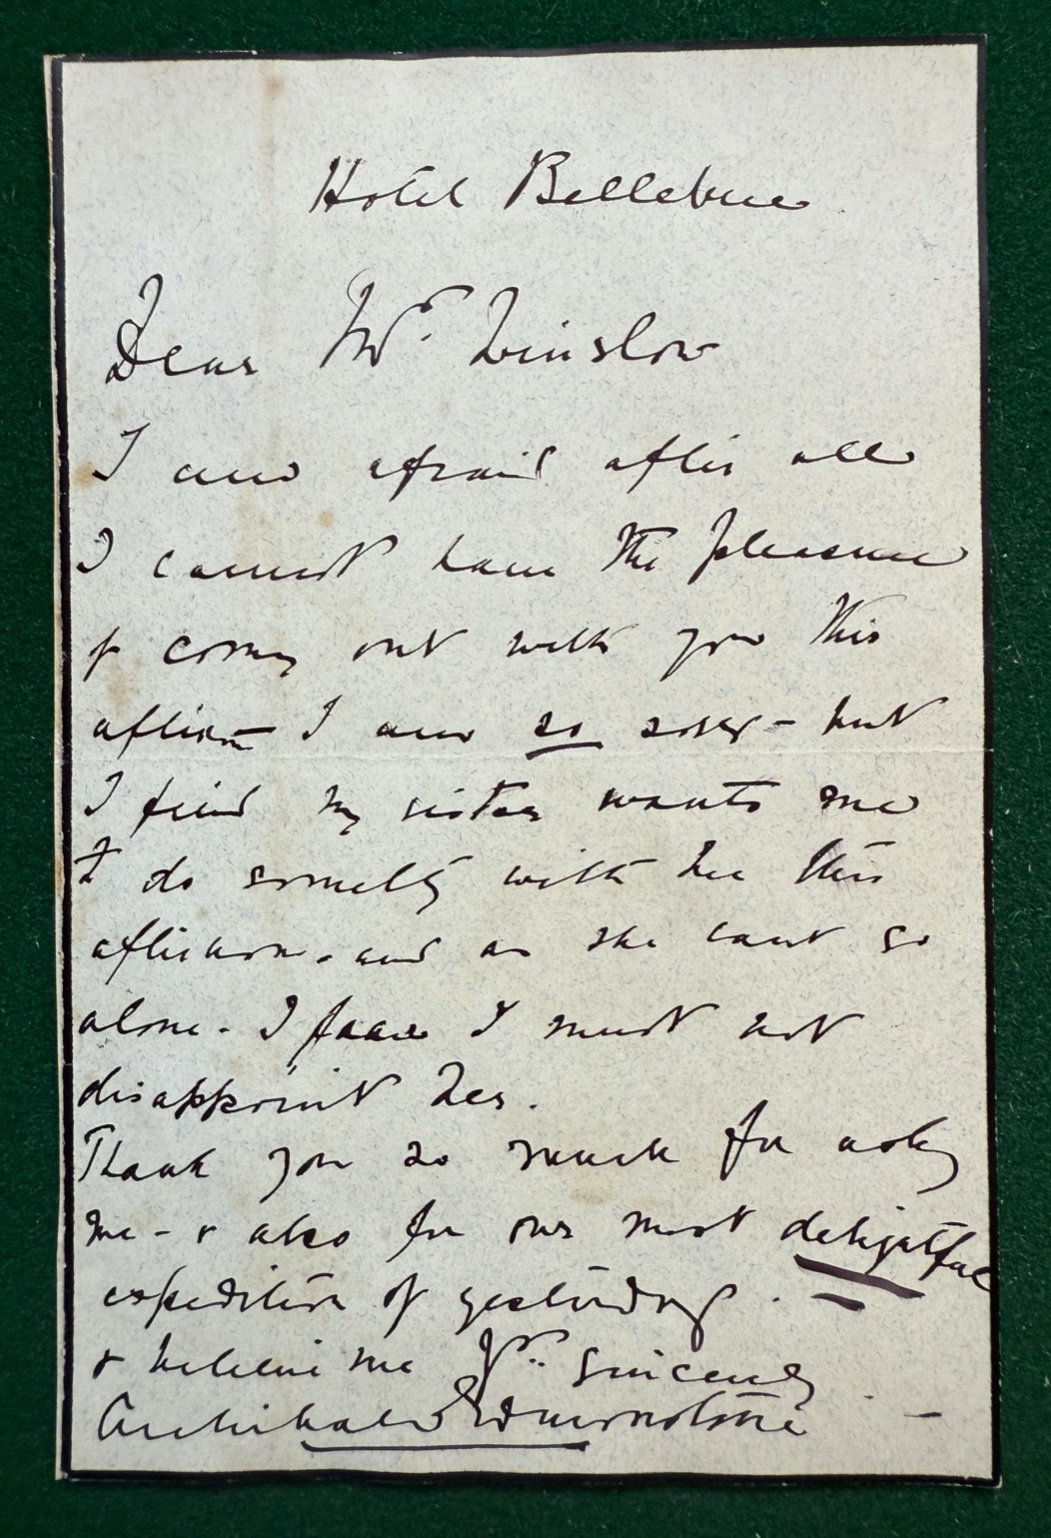 Hotel Bellevue
Dear Mr. Winslow
I am afraid after all
I cannot have the pleasure
of coming out with you this
afternoon I am so sorry - but
I find my sister wants me
to do something with her this
afternoon. and as she cant go
alone. I fear I must not
disappoint her.
Thank you so much for asking
me - & also for our most delightful
expedition of yesterday.
& believe me Yrs. sincerely
Archibald Edmonstone